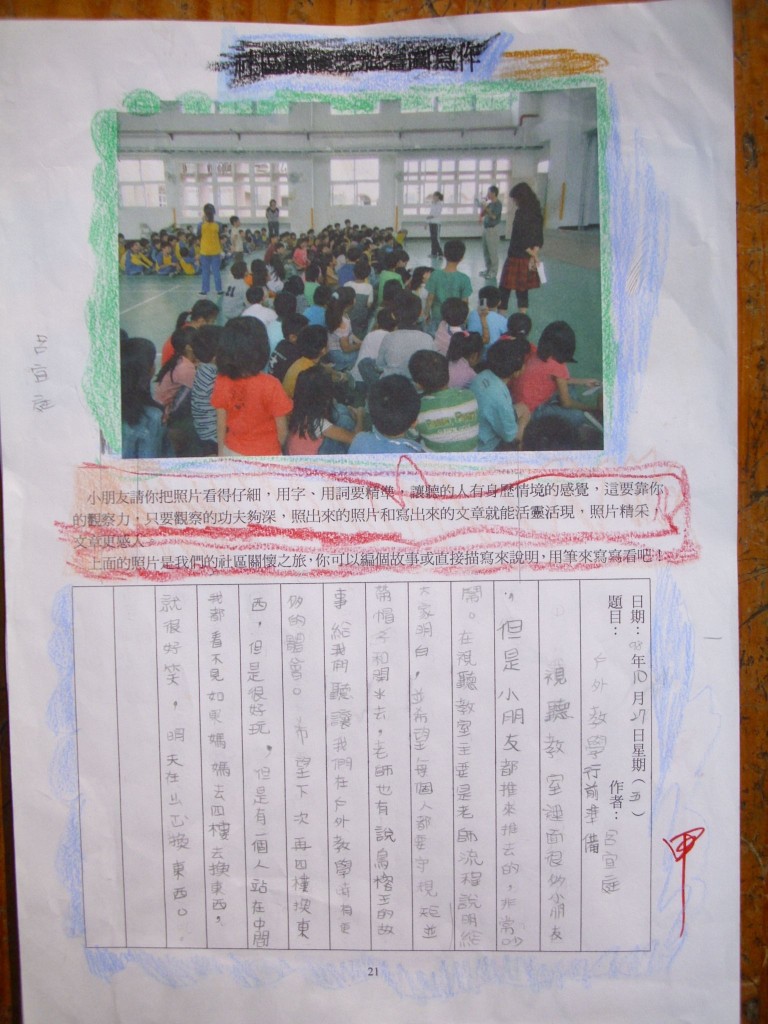 看圖寫作
呂宜庭
小朋友請你把照片看得仔細，用字、用詞要精準，讓聽的人有身歷情境的感覺，這要靠你
的觀察力，只要觀察的功夫夠深，照出來的照片和寫出來的文章就能活靈活現，照片精采，
文章更感人。
上面的照片是我們的社區關懷之旅，你可以編個故事或直接描寫來說明，用筆來寫寫看吧！
日期：98年10月27日星期（五）
題目：戶外教學行前準備
作者：呂宜庭
甲
視聽教室裡面很多小朋友
，但是小朋友都推來推去的，非常吵
鬧。在視聽教室主要是老師流程說明給
大家明白，並希望每個人都要守規矩並
帶帽子和開水去，老師也有說烏榕王的故
事給我們聽讓我們在戶外教學前有更
多的體會。希望下次再四樓換東
西，但是很好玩，但是有一個人站在中間
我都看不見如果媽媽去四樓去換東西，
就很好笑，明天在換東西。
21